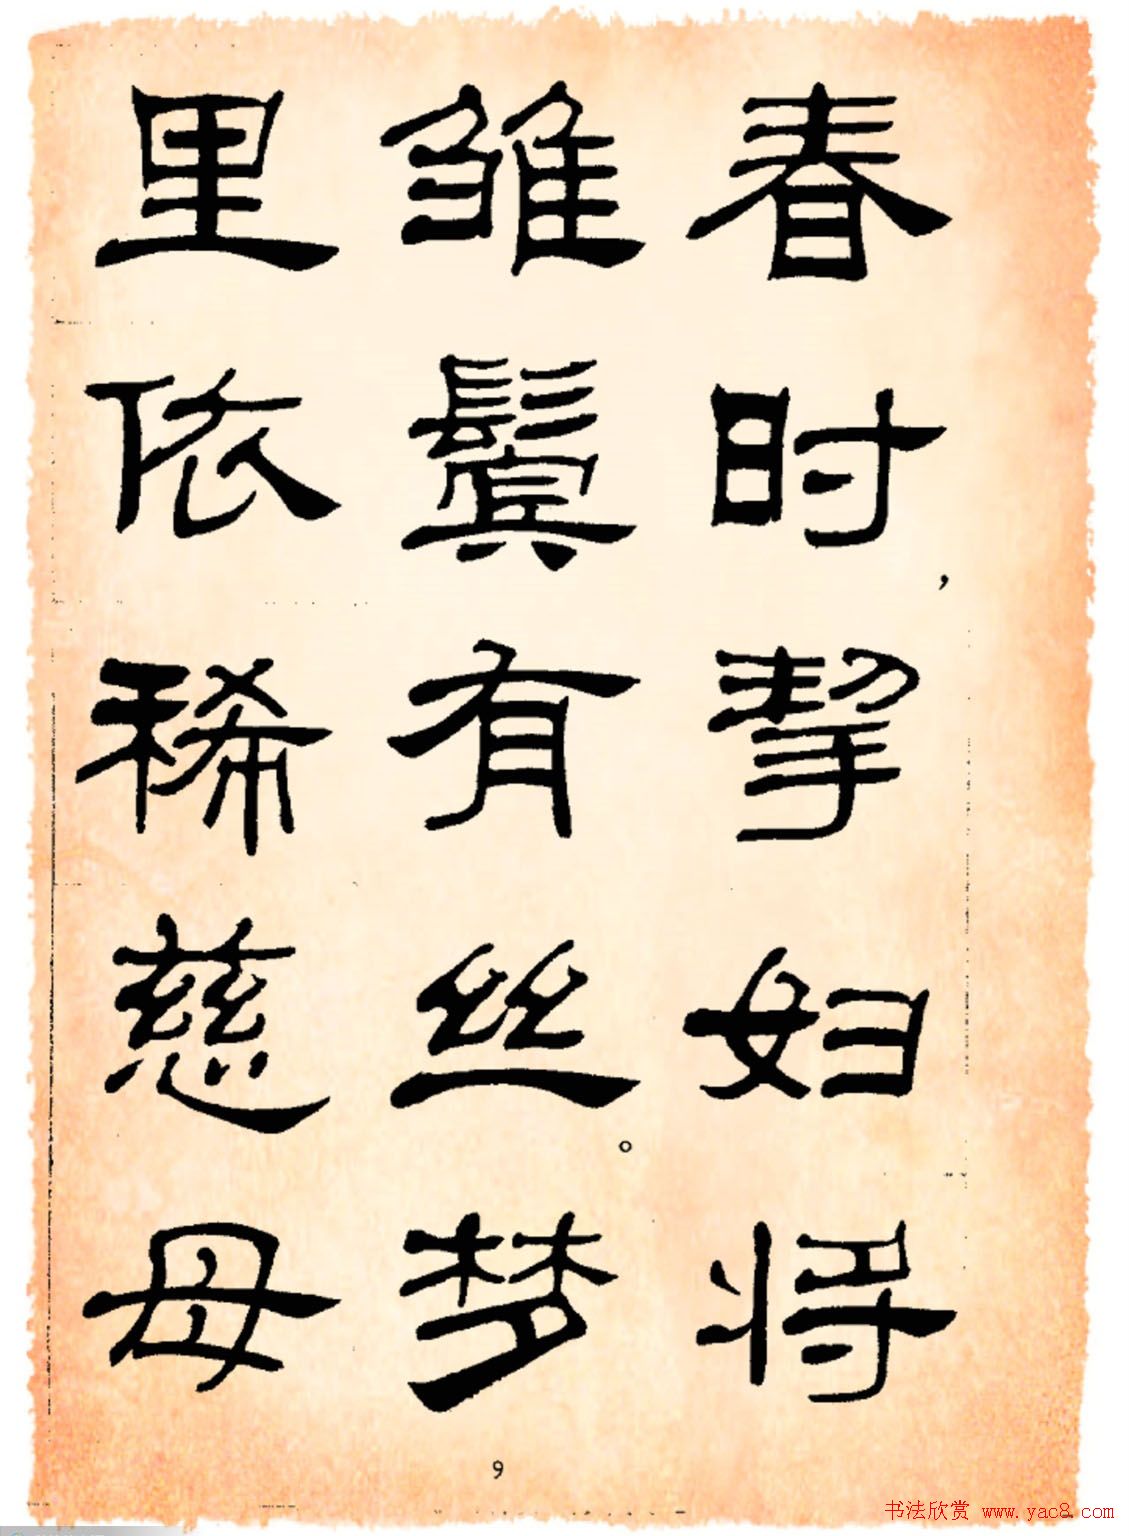 春时，挈妇将
雏鬓有丝。梦
里依稀慈母
9
书法欣赏 www.yac8.com